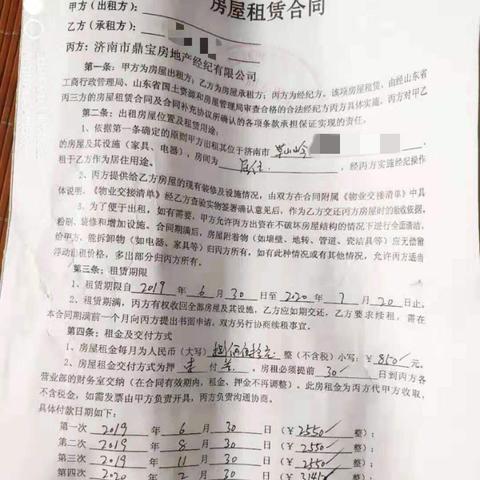 房屋租赁合同
甲方（出租方）：
乙方（承租方）：
丙方：济南市鼎宝房地产经纪有限公司
第一条：甲方为房屋出租方；乙方为房屋承租方；丙方为经纪方。该项房屋租赁，由经山东省
工商行政管理局、山东省国土资源和房屋管理局审查合格的合法经纪方丙方具体实施。丙方对甲乙
丙三方的房屋租赁合同及合同补充协议所确认的各项条款承担保证实现的责任。
第二条：出租房屋位置及租赁用途：
1、依据第一条确定的原则甲方出租其位于济南市
的房屋及其设施（家具、电器），房间为 居住，经丙方实施经纪操作
租于乙方作为居住用途。
2、丙方提供给乙方房屋的现有装修及设施情况，由双方在合同附属《物业交接清单》中具
体说明。《物业交接清单》经乙方查验实物签署确认意见后，作为乙方交还丙方房屋时的验收依据。
3、为了便于出租，如有需要，甲方允许丙方出资在不破坏房屋结构的情况下进行全面清洁、
粉刷、装修和增加设施。合同期满后，房屋附着物（如墙壁、地转、管道、瓷洁具等）应无偿留
给甲方，能拆卸物（如电器、家具等）归丙方所有。如有此种情况或有其他情况，允许丙方适当
浮动出租价格，多出部分归丙方所有。
第三条：租赁期限
1、租赁期限自 2019 年 6 月 30 日至 2020 年 7 月 20 日止。
2、租赁期满，丙方有权收回全部房屋及其设施，乙方应如期交还，乙方要求续租，需在
本合同期满前一个月向丙方提出书面申请，双方另行协商续租事宜。
第四条：租金及交付方式
1、房屋租金每月为人民币（大写）捌佰伍拾元 整（不含税）小写：￥850元。
2、房屋租金交付方式为押 付 ，房租必须提前 30 日到丙方各
营业部的财务室交纳（在合同有效期内，租金、押金不再调整）。此房租金为丙方代甲方收取，
不含税金，如需发票由甲方负责开具，丙方负责沟通协商。
具体付款日期如下：
第一次 2019 年 6 月 30 日（￥2550 整）；
第二次 2019 年 8 月 30 日（￥2550 整）；
第三次 2019 年 11 月 30 日（￥2550 整）；
第四次 2020 年 2 月 30 日（￥ 整）；